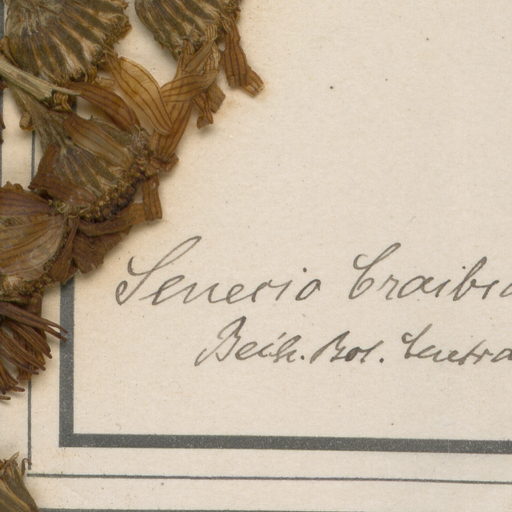 Senecio Craibia
Beih. Bot. Centra